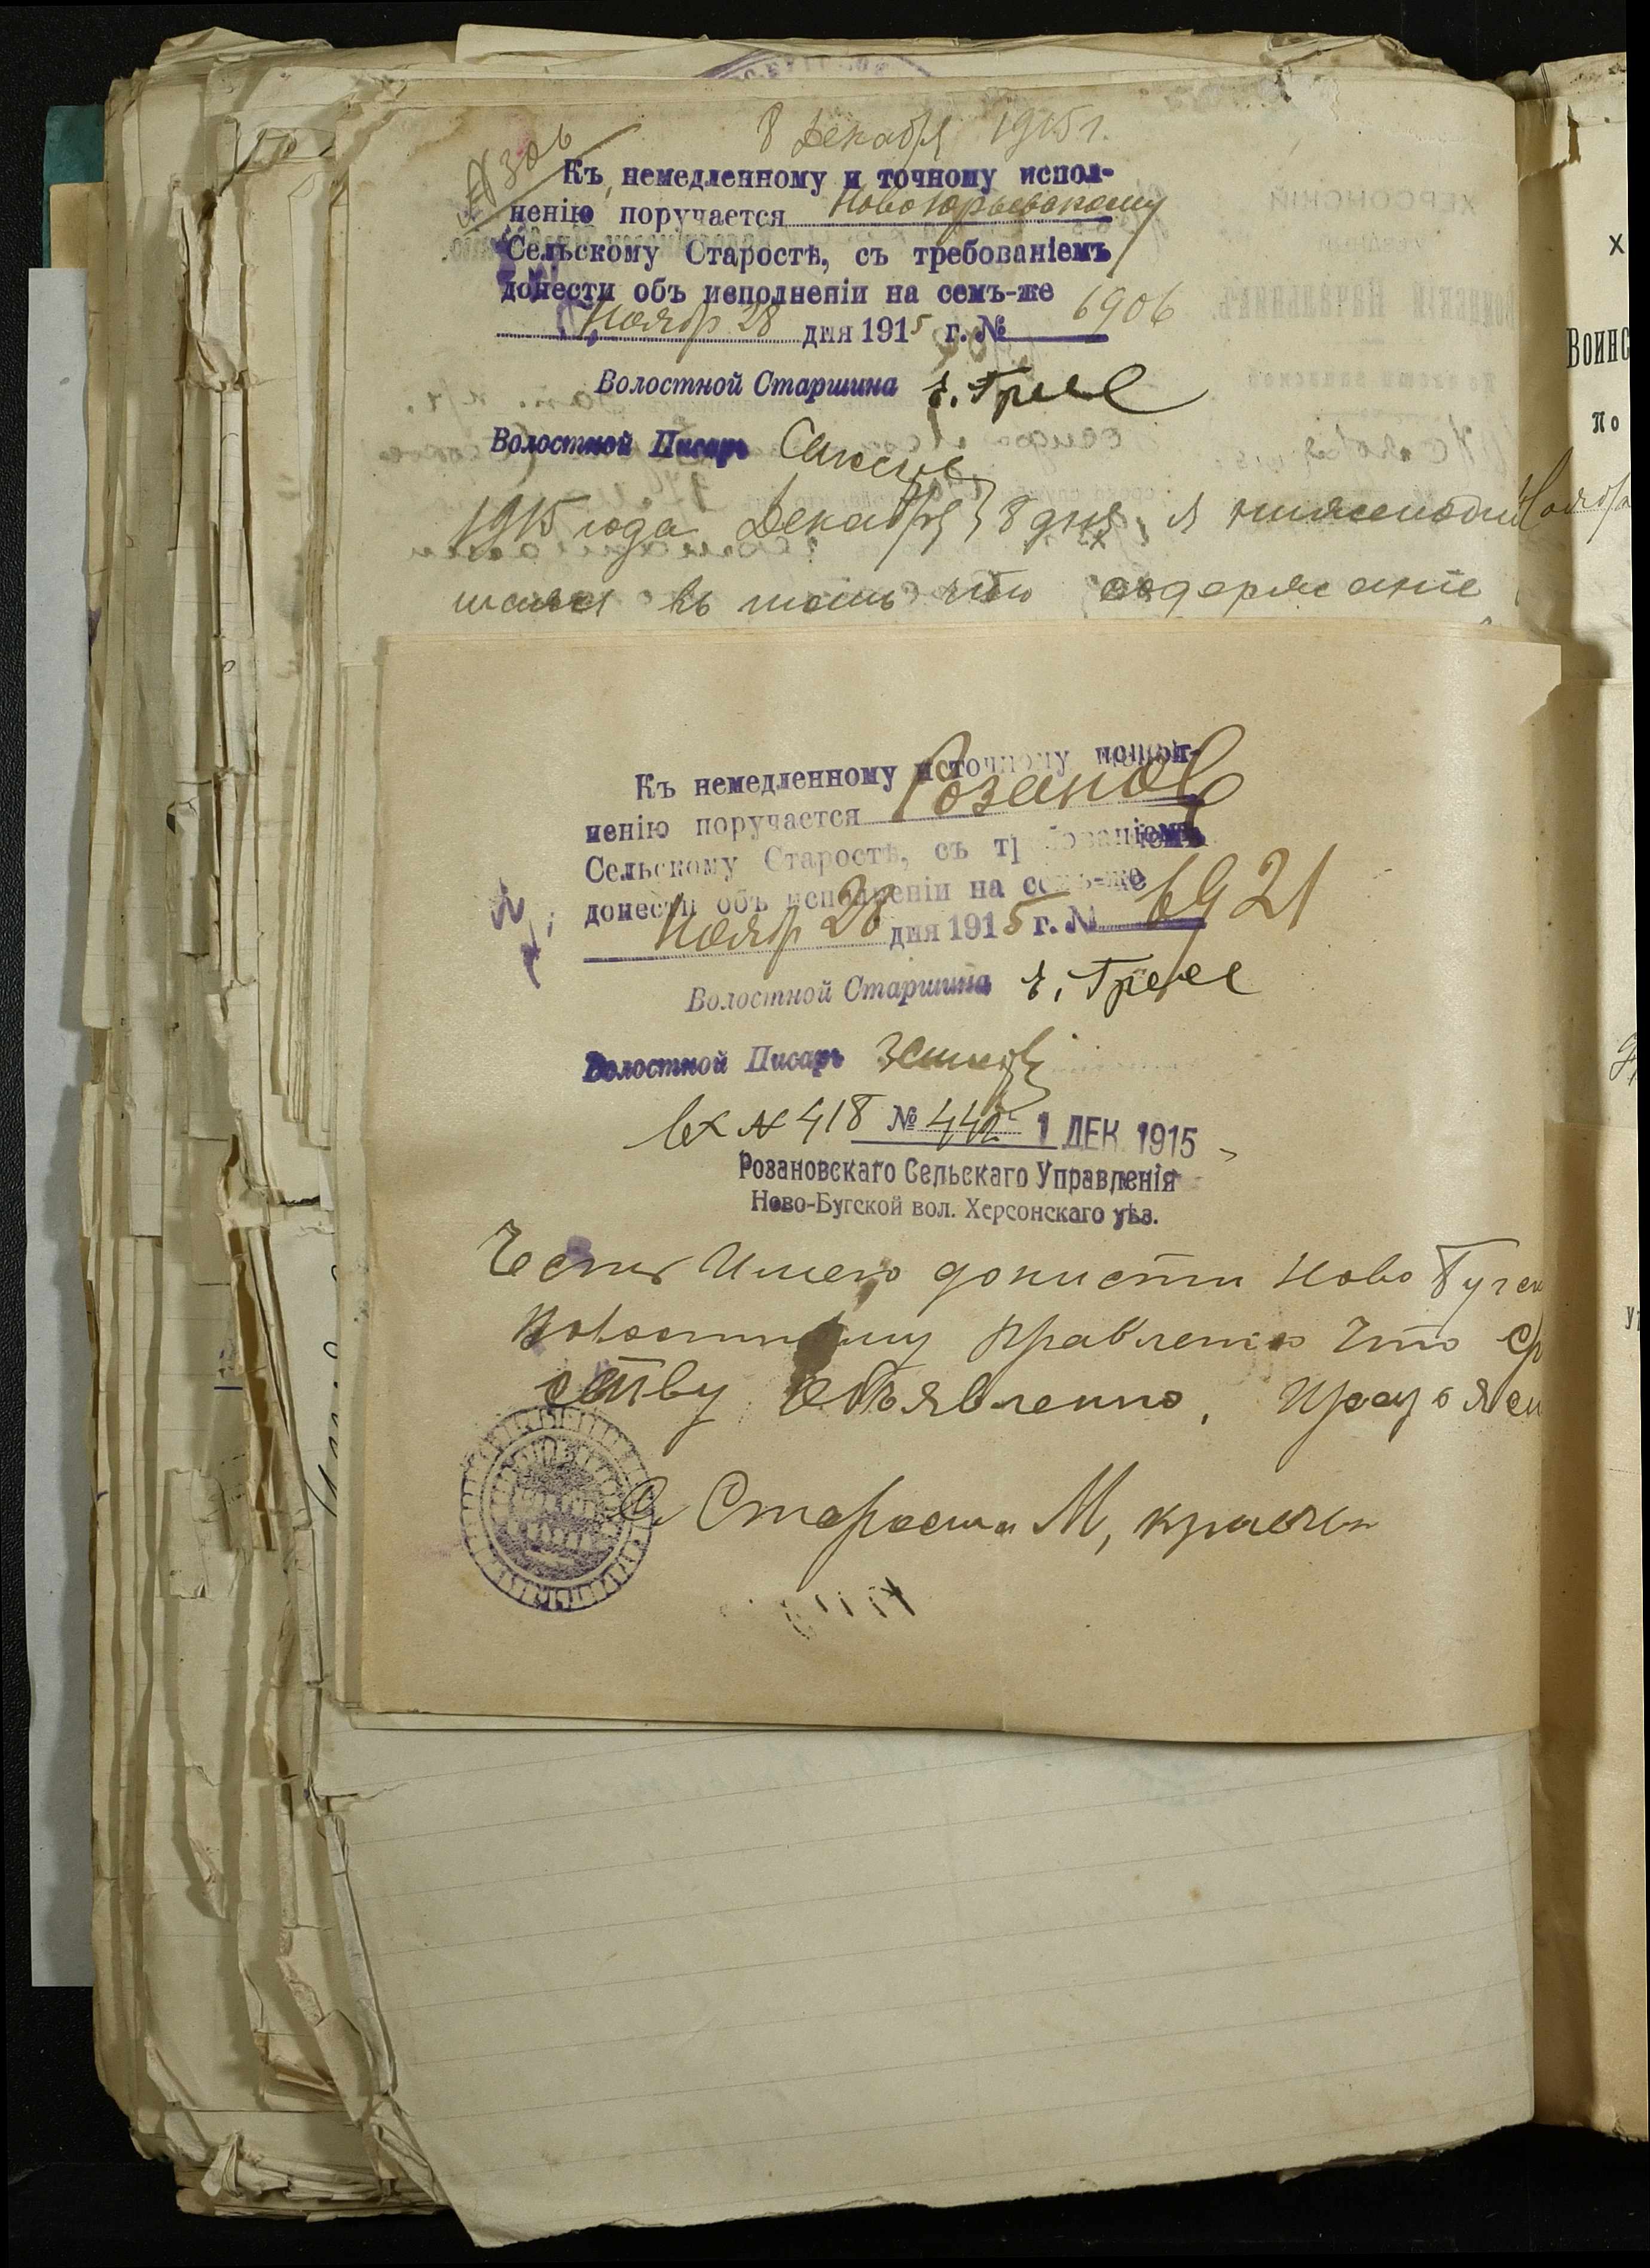 № 306
8 Декабря 1915 г.
Къ немедленному и точному испол-
ненію поручается Новоюрьевскому
Сельскому Старостѣ, съ требованіемъ
донести объ исполненіи на семъ-же
Ноябр 28 дня 1915 г. № 6906
Волостной Старшина
Волостной Писарь
1915 года Декабря 8 дня, я нижеподпи
въ томъ что содержаніе
Къ немедленному и точному испол-
ненію поручается Розанов
Сельскому Старостѣ, съ требованіемъ
донести объ исполненіи на семъ-же
Ноябр 28 дня 1915 г. № 6921
Волостной Старшина
Волостной Писарь
вх № 418 № 442 1 ДЕК. 1915
Розановскаго Сельскаго Управленія
Ново-Бугской вол. Херсонскаго уѣз.
Честь Имею донисти Ново Бугск
Волостному Правлению Что
ству Объявленно,
С. Староста М,
ХЕРСОНСКІЙ
Воинскій Начальникъ.
Х
Воинс
По
Ноября